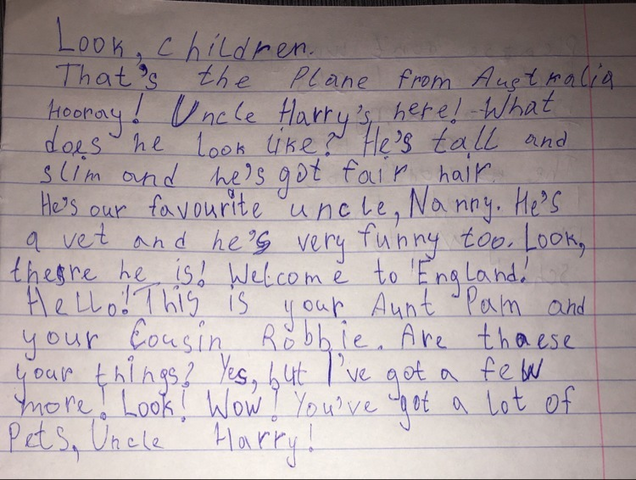 Look, children.
That's the Plane from Australia
Hooray! Uncle Harry's here! What
does he look like? He's tall and
slim and he's got fair hair.
He's our favourite uncle, Nanny. He's
a vet and he's very funny too. Look,
thesre he is! Welcome to England!
Hello! This is your Aunt Pam and
your Cousin Robbie. Are thaese
your things? Yes, but I've got a few
more! Look! Wow! You've got a lot of
Pets, Uncle Harry!